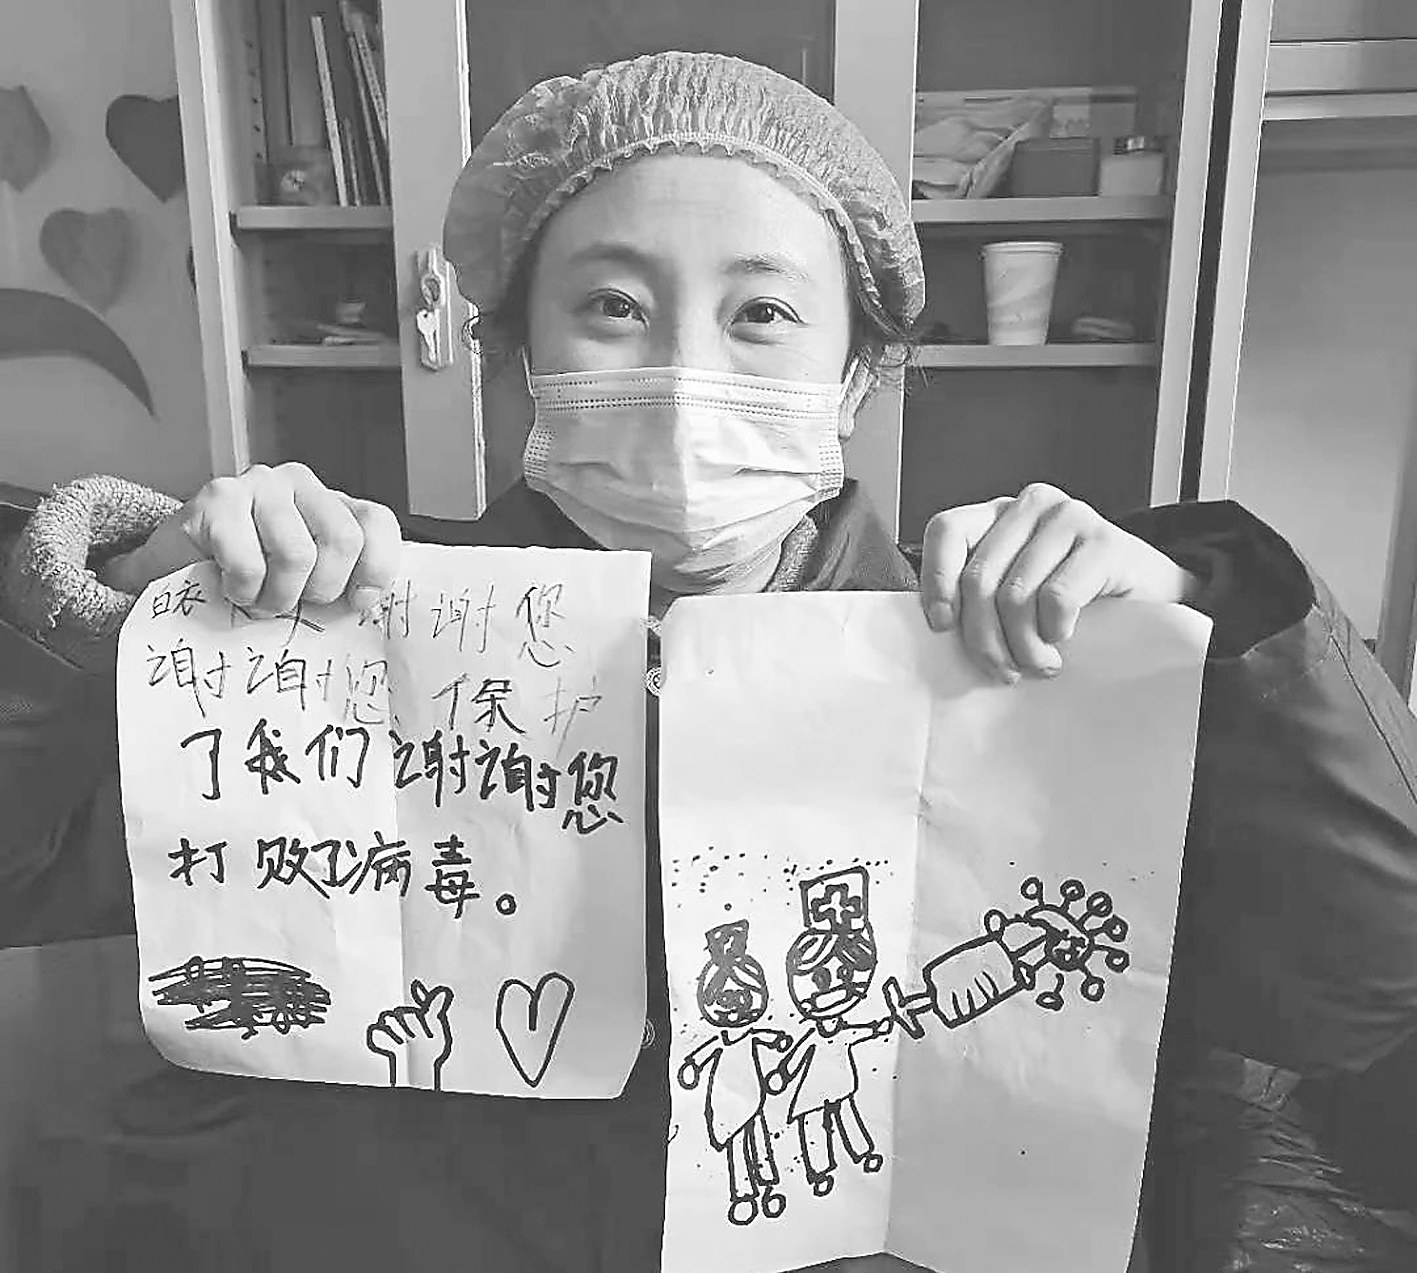 白衣 谢谢您
谢谢您 保护
了我们谢谢您
打败了病毒。